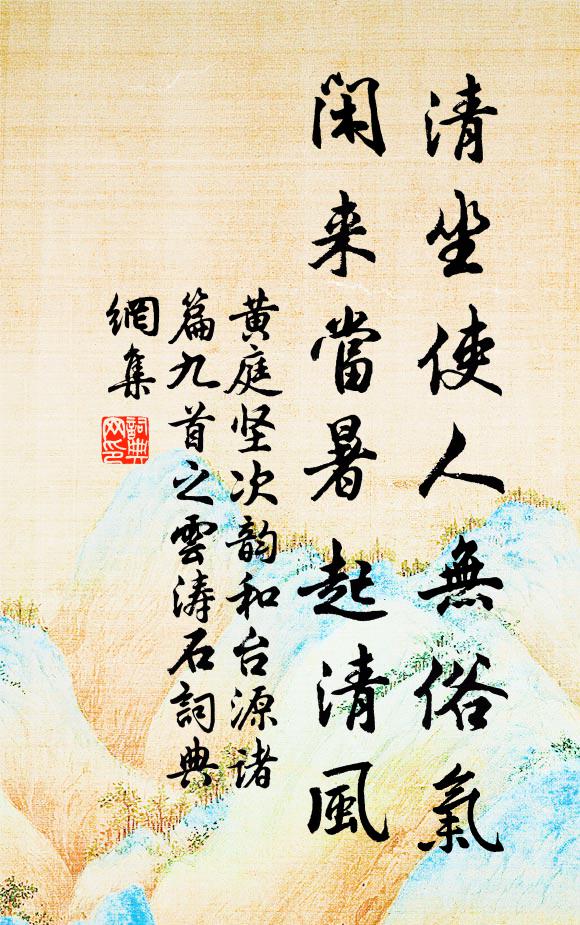 清坐使人無俗氣
閑来當暑起清風
黄庭坚次韵和台源诸
篇九首之雲涛石詞典
網集
詞典
网印